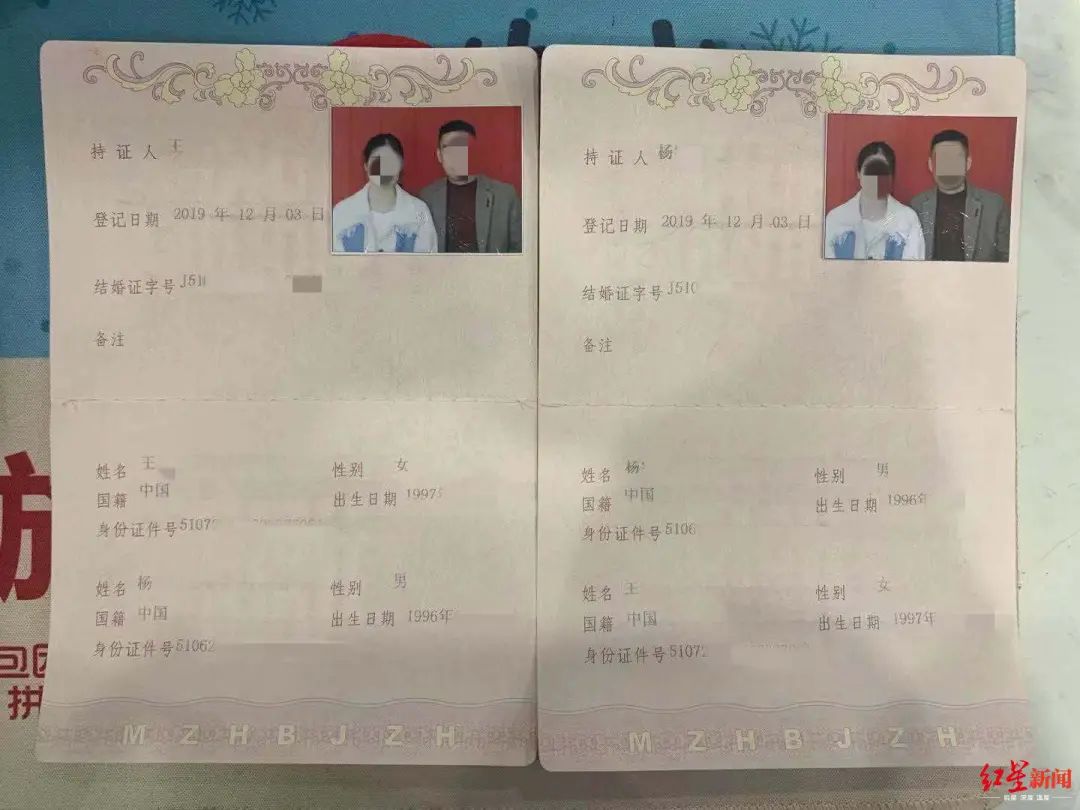 持证人 王
登记日期 2019 年 12 月 03 日
结婚证字号 J51
备注
姓名 王 性别 女
国籍 中国 出生日期 1997
身份证件号 5107
姓名 杨 性别 男
国籍 中国 出生日期 1996年
身份证件号 51062
MZHBJZH
持证人 杨
登记日期 2019 年 12 月 03 日
结婚证字号 J510
备注
姓名 杨 性别 男
国籍 中国 出生日期 1996年
身份证件号 5106
姓名 王 性别 女
国籍 中国 出生日期 1997年
身份证件号 5107
MZHBJZH
包
拼
红星新闻